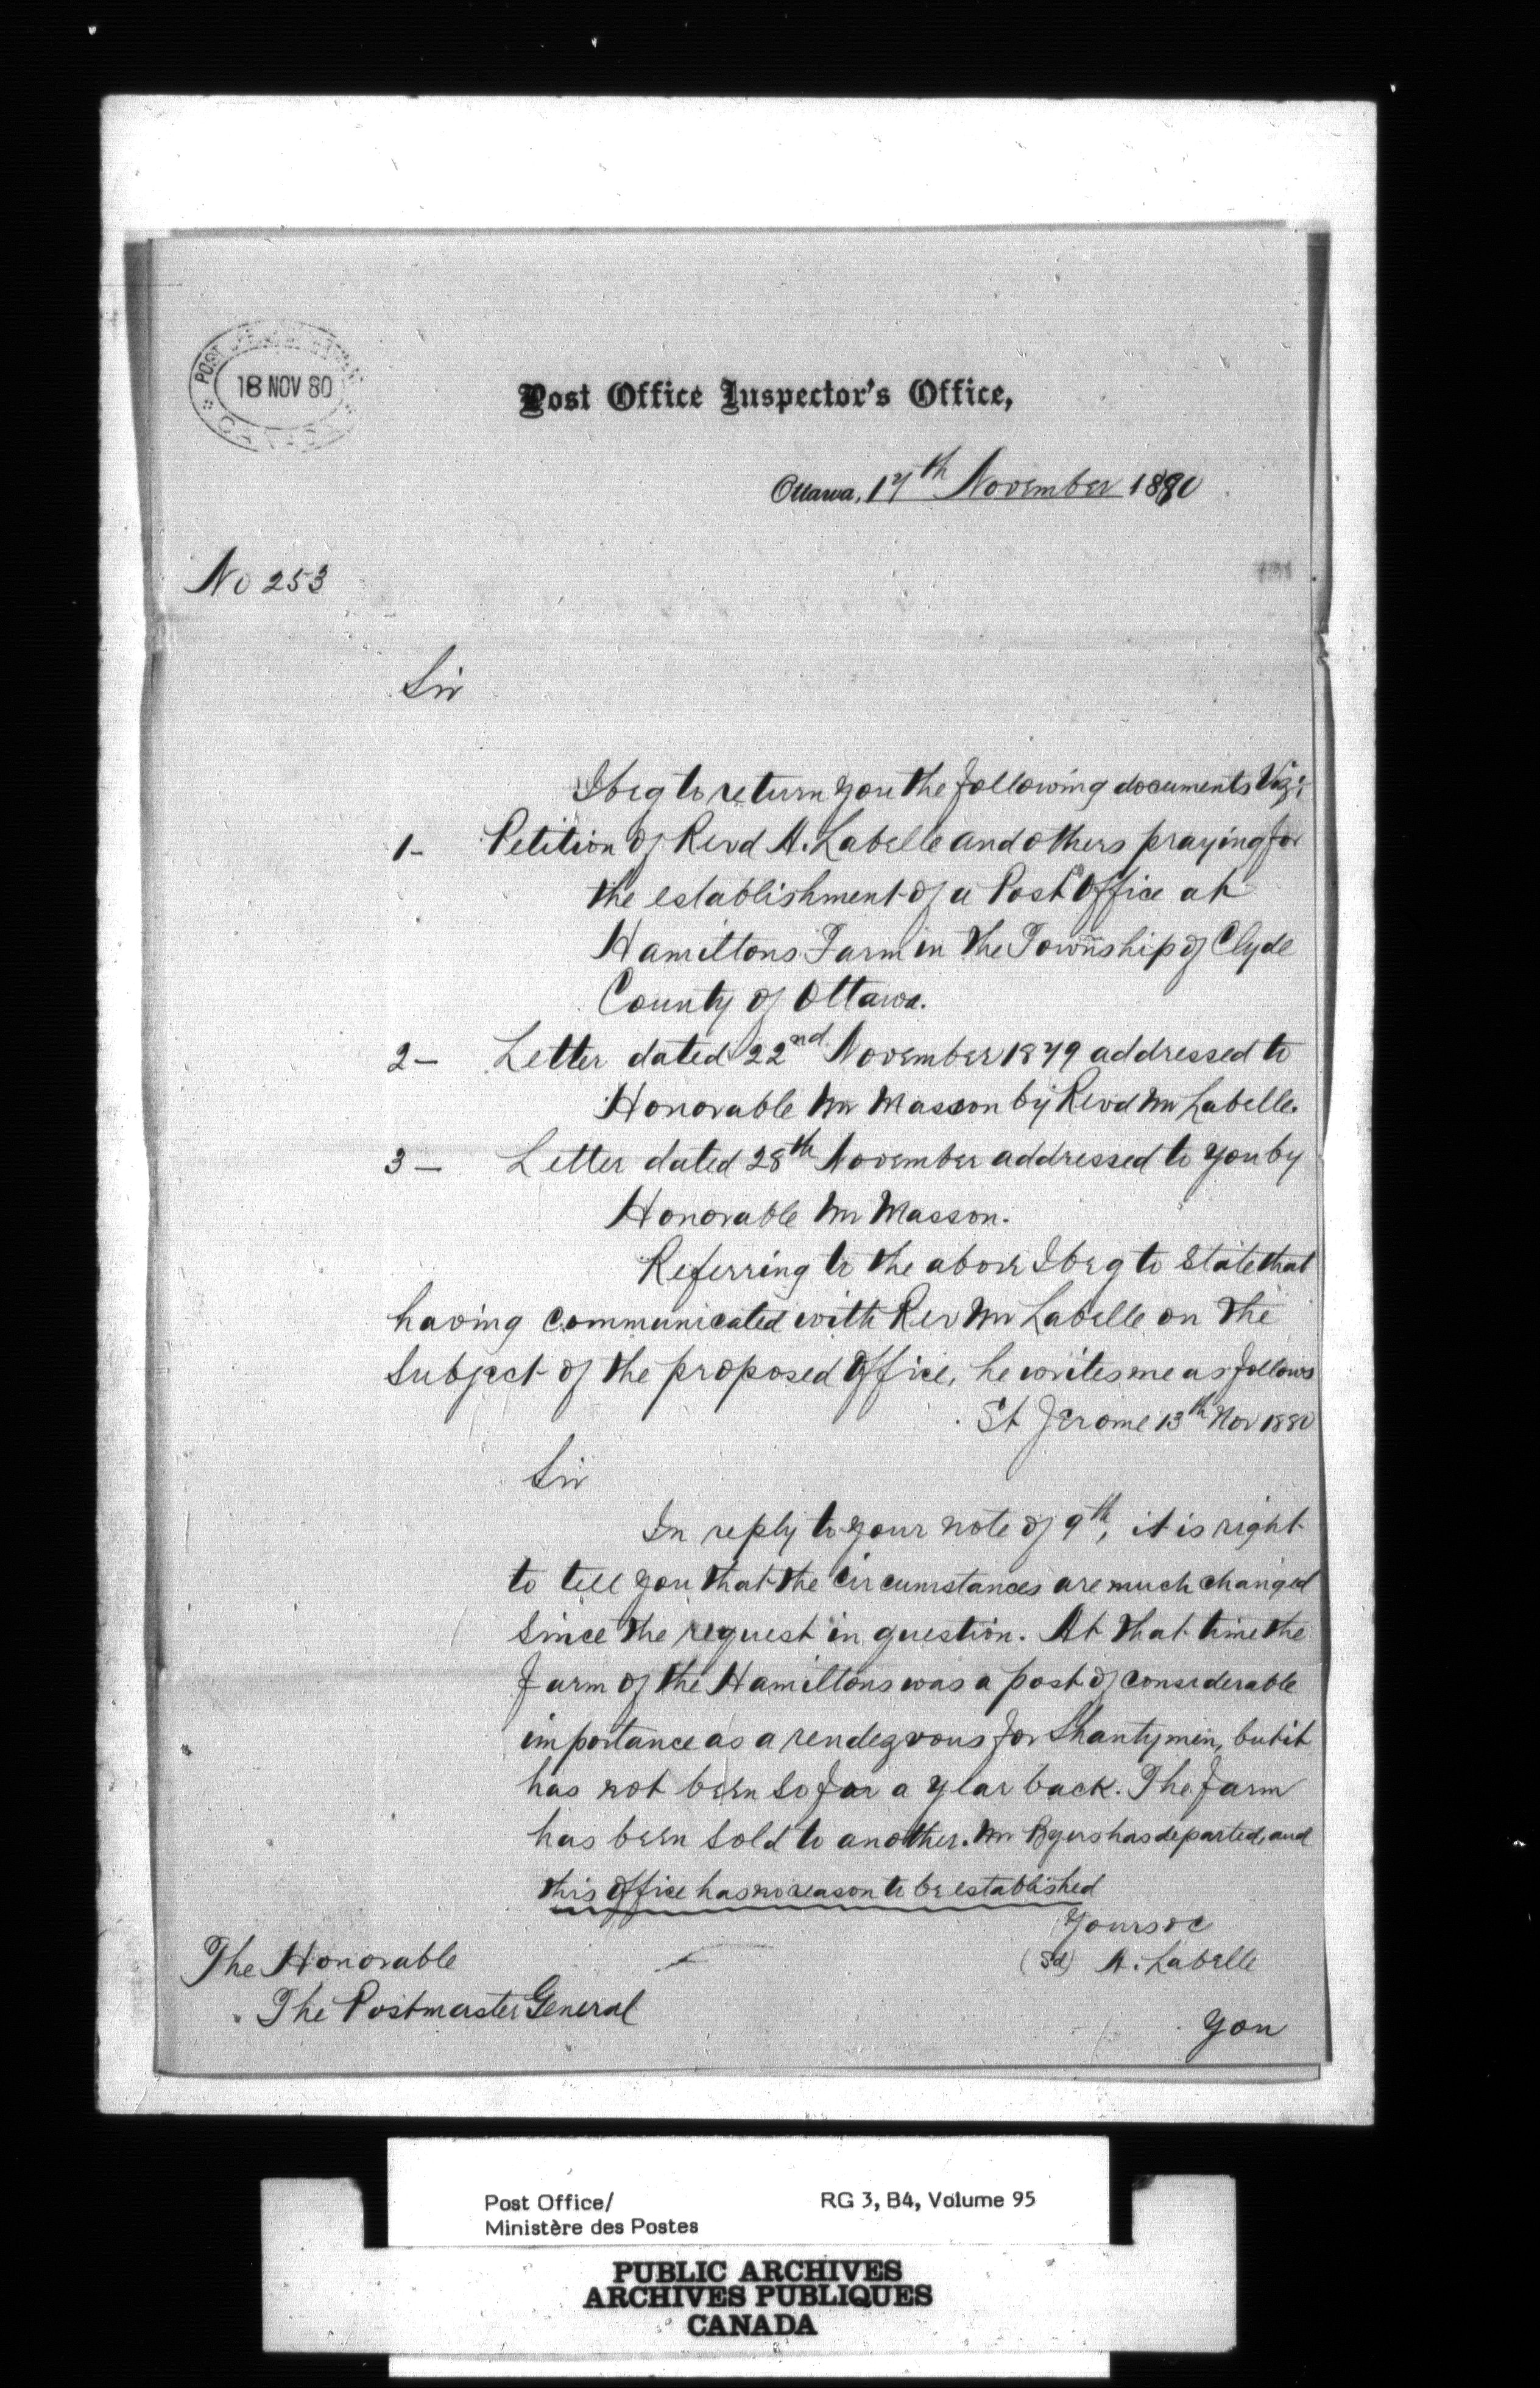 POST OFFICE
18 NOV 80
CANADA
Post Office Inspector's Office,
Ottawa, 17th November 1880
No 253
Sir
I beg to return you the following documents Viz:
1- Petition of Revd A. Labelle and others praying for
the establishment of a Post Office at
Hamiltons Farm in the Township of Clyde
County of Ottawa.
2- Letter dated 22nd November 1879 addressed to
Honorable Mr Masson by Revd Mr Labelle.
3- Letter dated 28th November addressed to you by
Honorable Mr Masson.
Referring to the above I beg to State that
having communicated with Rev Mr Labelle on the
Subject of the proposed Office, he writes me as follows
St Jerome 13th Nov 1880
Sir
In reply to your note of 9th, it is right
to tell you that the circumstances are much changed
since the request in question. At that time the
farm of the Hamiltons was a post of considerable
importance as a rendezvous for Shantymen, but it
has not been so for a year back. The farm
has been sold to another. Mr Byers has departed, and
this office has no reason to be established
Yours &c
(Sd) A. Labelle
The Honorable
The Postmaster General
you
Post Office/ RG 3, B4, Volume 95
Ministère des Postes
PUBLIC ARCHIVES
ARCHIVES PUBLIQUES
CANADA